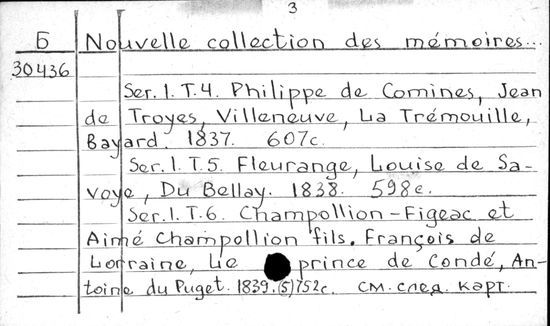 3
Б Nouvelle collection des mémoires...
30436
Ser. 1. T.4. Philippe de Comines, Jean
de Troyes, Villeneuve, La Trémouille,
Bayard. 1837. 607с.
Ser. 1. T.5. Fleurange, Louise de Sa-
voye, Du Bellay. 1838. 598с.
Ser. 1. T.6. Champollion-Figeac et
Aimé Champollion fils. François de
Lorraine, Le prince de Condé, An-
toine du Puget. 1839. (5) 752с. см. след. карт.